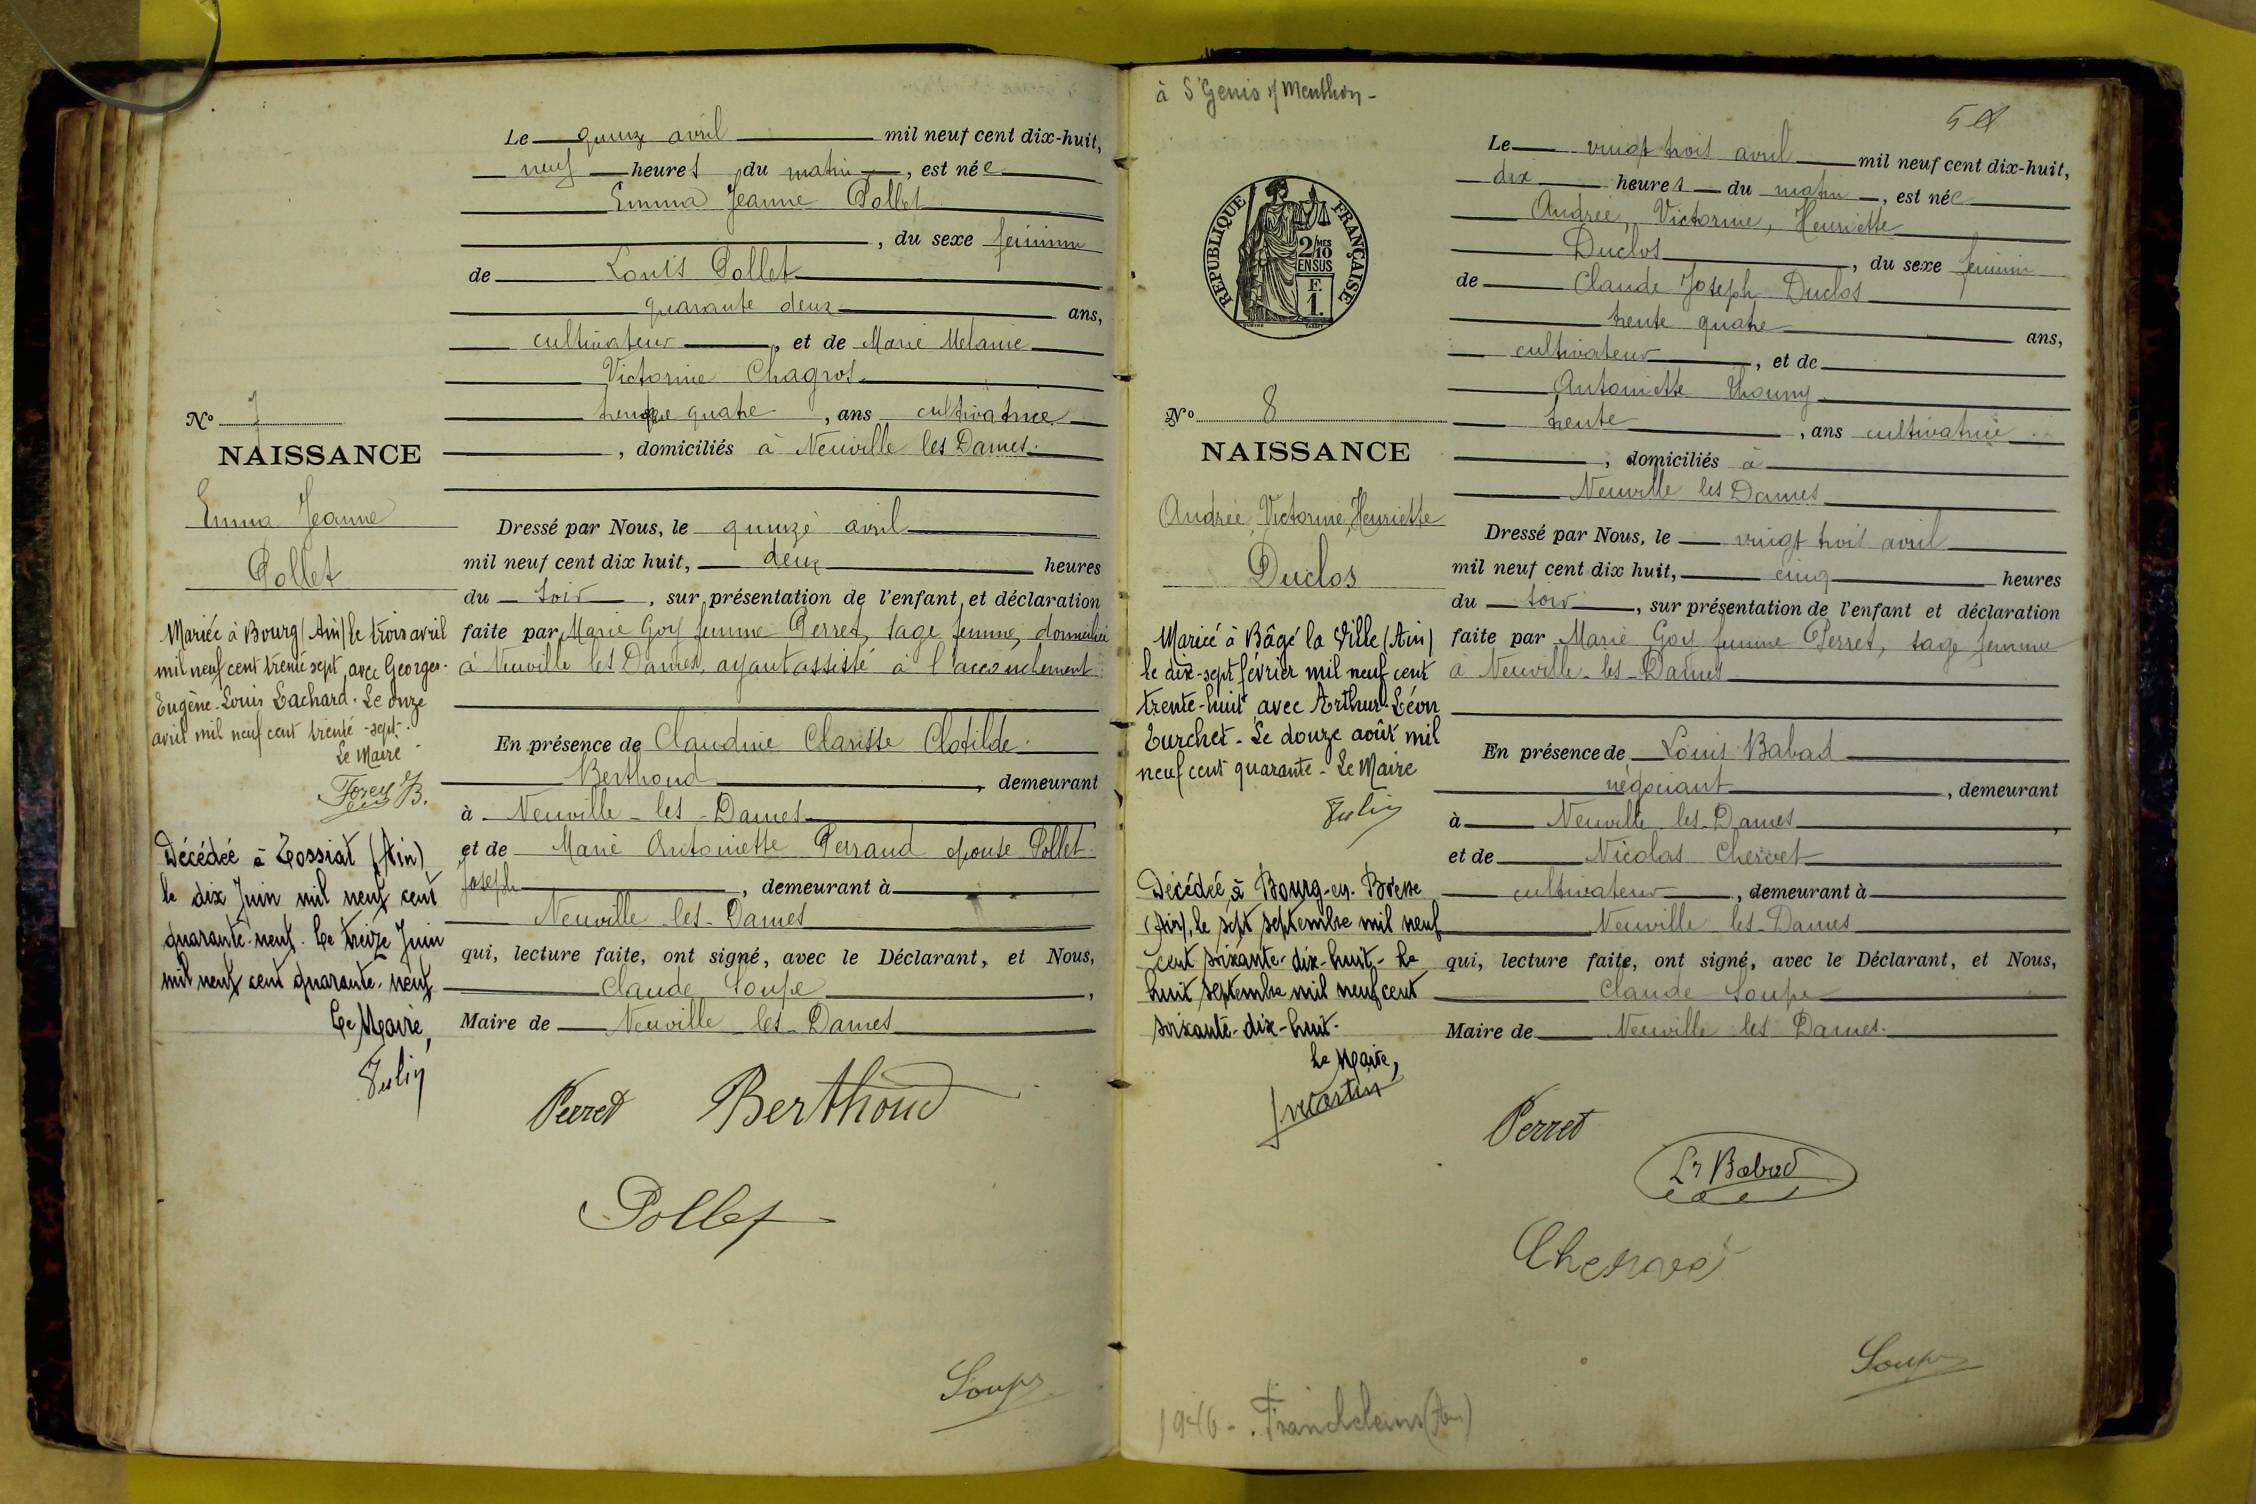 Le quinze avril mil neuf cent dix-huit,
neuf heures du matin, est née
Emma Jeanne Pollet
, du sexe féminin
de Louis Pollet
quarante deux ans,
cultivateur, et de Marie Melanie
Victorine Chagros
quatre, ans cultivatrice
, domiciliés à Neuville les Dames
N° 7
NAISSANCE
Emma Jeanne
Pollet
Dressé par Nous, le quinze avril
mil neuf cent dix huit, deux heures
du soir, sur présentation de l'enfant et déclaration
faite par Marie Goy femme Perret, sage femme, domiciliée
à Neuville les Dames, ayant assisté à l'accouchement
En présence de Claudine Clarisse Clotilde
Berthoud, demeurant
à Neuville-les-Dames
et de Marie Antoinette Perraud épouse Pollet
Joseph, demeurant à
Neuville les-Dames
qui, lecture faite, ont signé, avec le Déclarant, et Nous,
Claude Soupe,
Maire de Neuville les-Dames
Mariée à Bourg (Ain) le trois avril
mil neuf cent trente sept avec Georges-
Eugène-Louis Lachard. Le onze
avril mil neuf cent trente-sept.
Le Maire
Décédée à Tossiat (Ain)
le dix Juin mil neuf cent
quarante-neuf. Le treize Juin
mil neuf cent quarante-neuf
Le Maire,
Perret Berthoud
Pollet
Soupe
à St Genis s/ Menthon-
Le vingt trois avril mil neuf cent dix-huit,
dix heures du matin, est née
Andrée, Victorine, Henriette
Duclos, du sexe féminin
de Claude Joseph Duclos
trente quatre ans,
cultivateur, et de
Antoinette Thouny
trente, ans cultivatrice
, domiciliés à
Neuville les Dames
RÉPUBLIQUE FRANÇAISE
2/10 MES
EN SUS
F.
1.
N° 8
NAISSANCE
Andrée, Victorine, Henriette
Duclos
Dressé par Nous, le vingt trois avril
mil neuf cent dix huit, cinq heures
du soir, sur présentation de l'enfant et déclaration
faite par Marie Goy femme Perret, sage femme
à Neuville-les-Dames
En présence de Louis Babad
négociant, demeurant
à Neuville les-Dames,
et de Nicolas Chervet
cultivateur, demeurant à
Neuville les-Dames
qui, lecture faite, ont signé, avec le Déclarant, et Nous,
Claude Soupe
Maire de Neuville les Dames
Mariée à Bâgé la Ville (Ain)
le dix-sept février mil neuf cent
trente-huit avec Arthur-Léon
Turchet - Le douze août mil
neuf cent quarante - Le Maire
Décédée à Bourg-en-Bresse
(Ain), le sept septembre mil neuf
cent soixante-dix-huit - Le
huit septembre mil neuf cent
soixante-dix-huit.
Le Maire,
Perret
Ls Babad
Soupe
1946 -